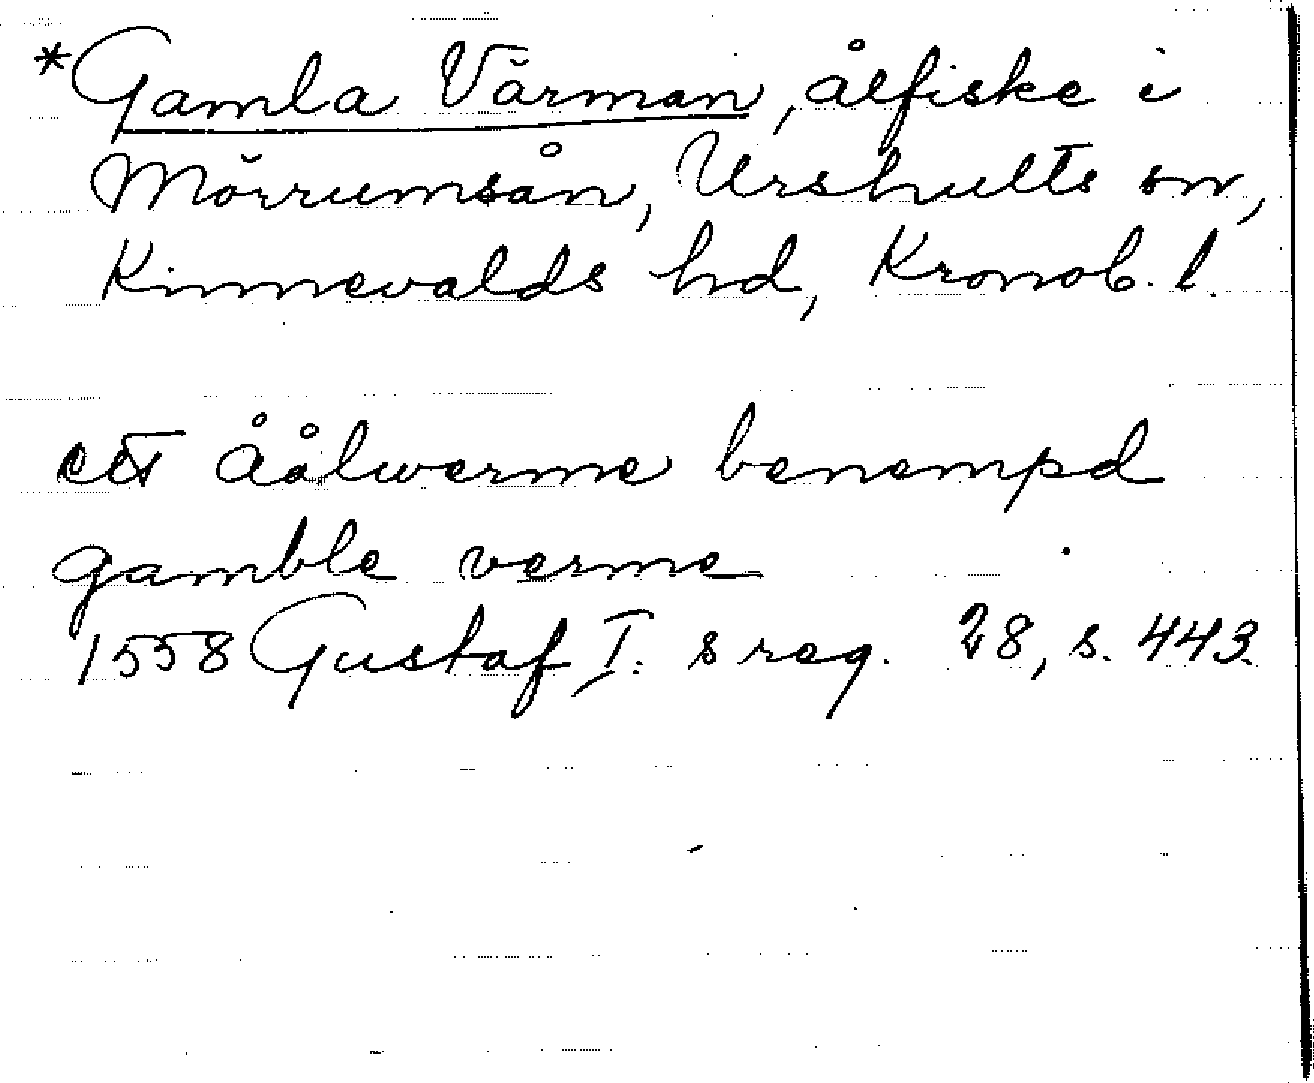 *Gamla Värman, ålfiske i
Mörrumsån, Urshults sn,
Kinnevalds hd, Kronob. l.
ett åålwerme benempd
gamble verme
1558 Gustaf I:s reg. 28, s. 443.